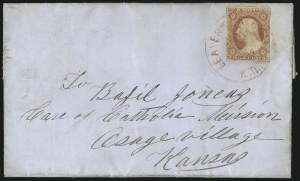 LEAVEN
K.T.
To Basil
Care of Catholic Mission
Osage village
Kansas